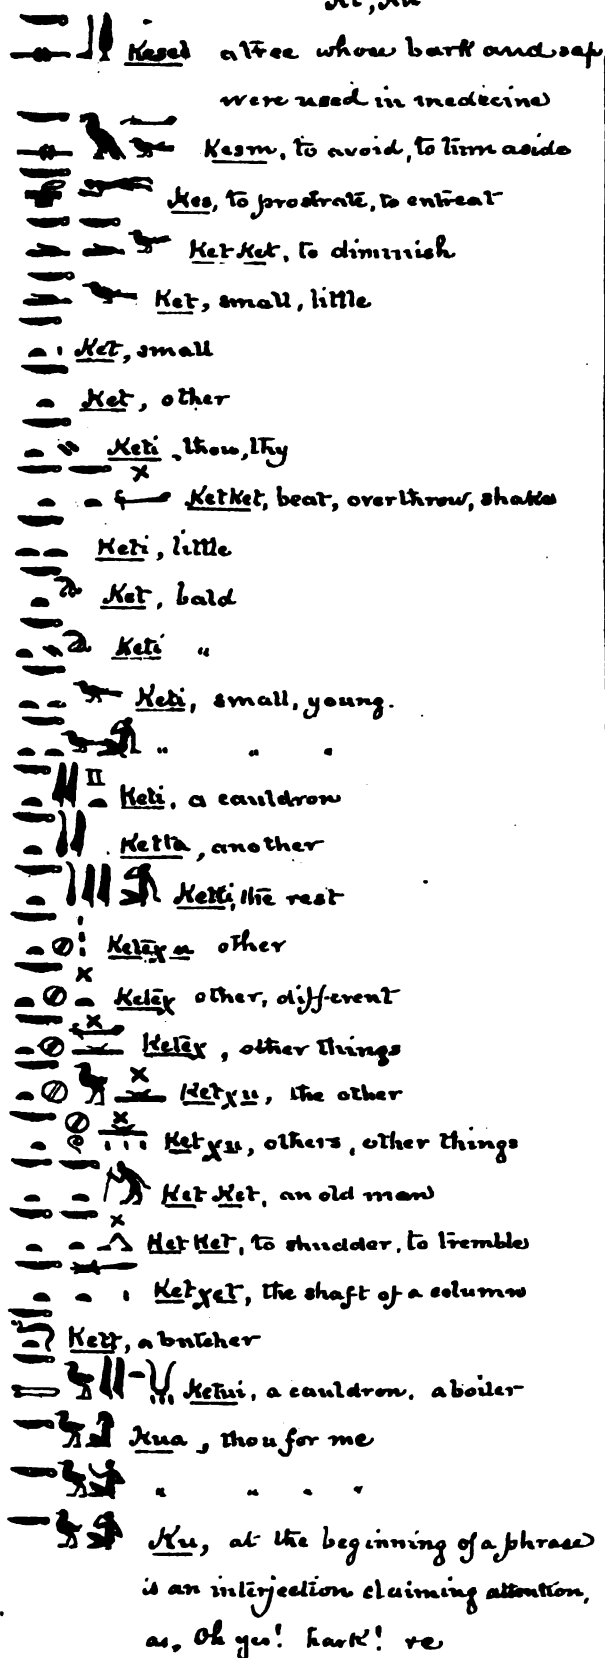 Kesed a tree whose bark and sap
were used in medecine
Kesm, to avoid, to turn aside
Kes, to prostrate, to entreat
Ket Ket, to diminish
Ket, small, little
Ket, small
Ket, other
Keti, thou, thy
KetKet, beat, overthrow, shake
Keti, little
Ket, bald
Keti "
Keti, small, young.
" " "
Keti, a cauldron
Ketta, another
Ketti, the rest
Ketexu other
Ketex other, different
Ketex, other things
Ketxu, the other
Ketxu, others, other things
Ket Ket, an old man
Ket Ket, to shudder, to tremble
Ketxet, the shaft of a column
Kett, a butcher
Ketui, a cauldron, a boiler
Kua, thou for me
" " " "
Ku, at the beginning of a phrase
is an interjection claiming attention,
as, Oh yes! hark! ve